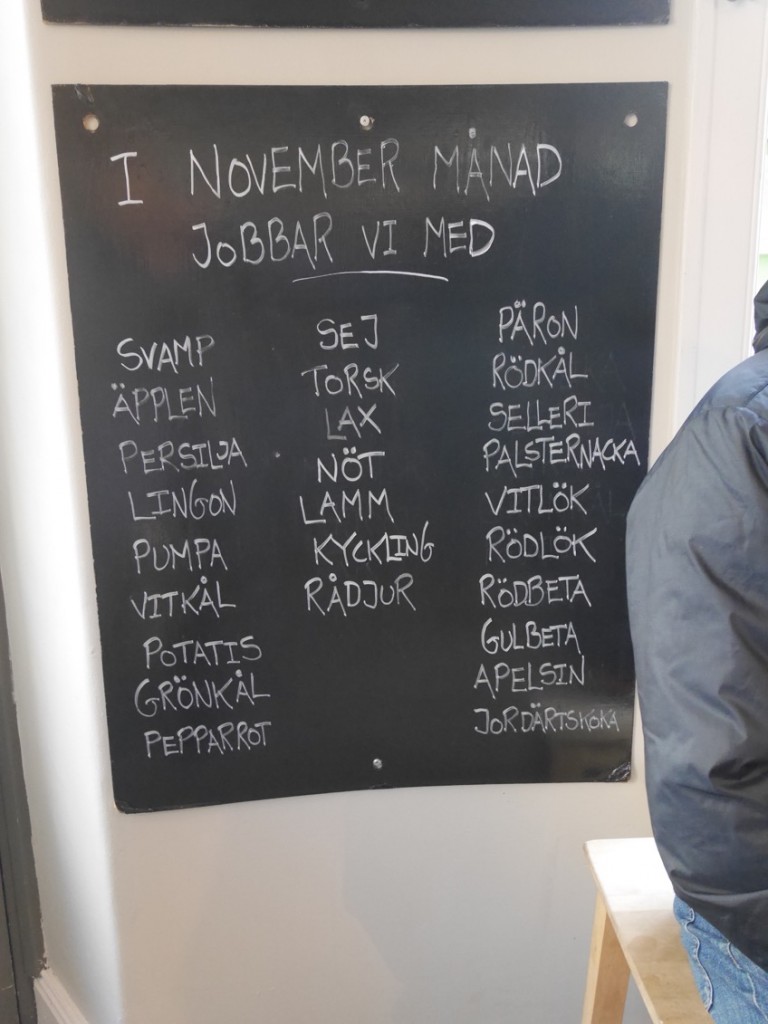 I NOVEMBER MÅNAD
JOBBAR VI MED
SVAMP
ÄPPLEN
PERSILJA
LINGON
PUMPA
VITKÅL
POTATIS
GRÖNKÅL
PEPPARROT
SEJ
TORSK
LAX
NÖT
LAMM
KYCKLING
RÅDJUR
PÄRON
RÖDKÅL
SELLERI
PALSTERNACKA
VITLÖK
RÖDLÖK
RÖDBETA
GULBETA
APELSIN
JORDÄRTSKOKA